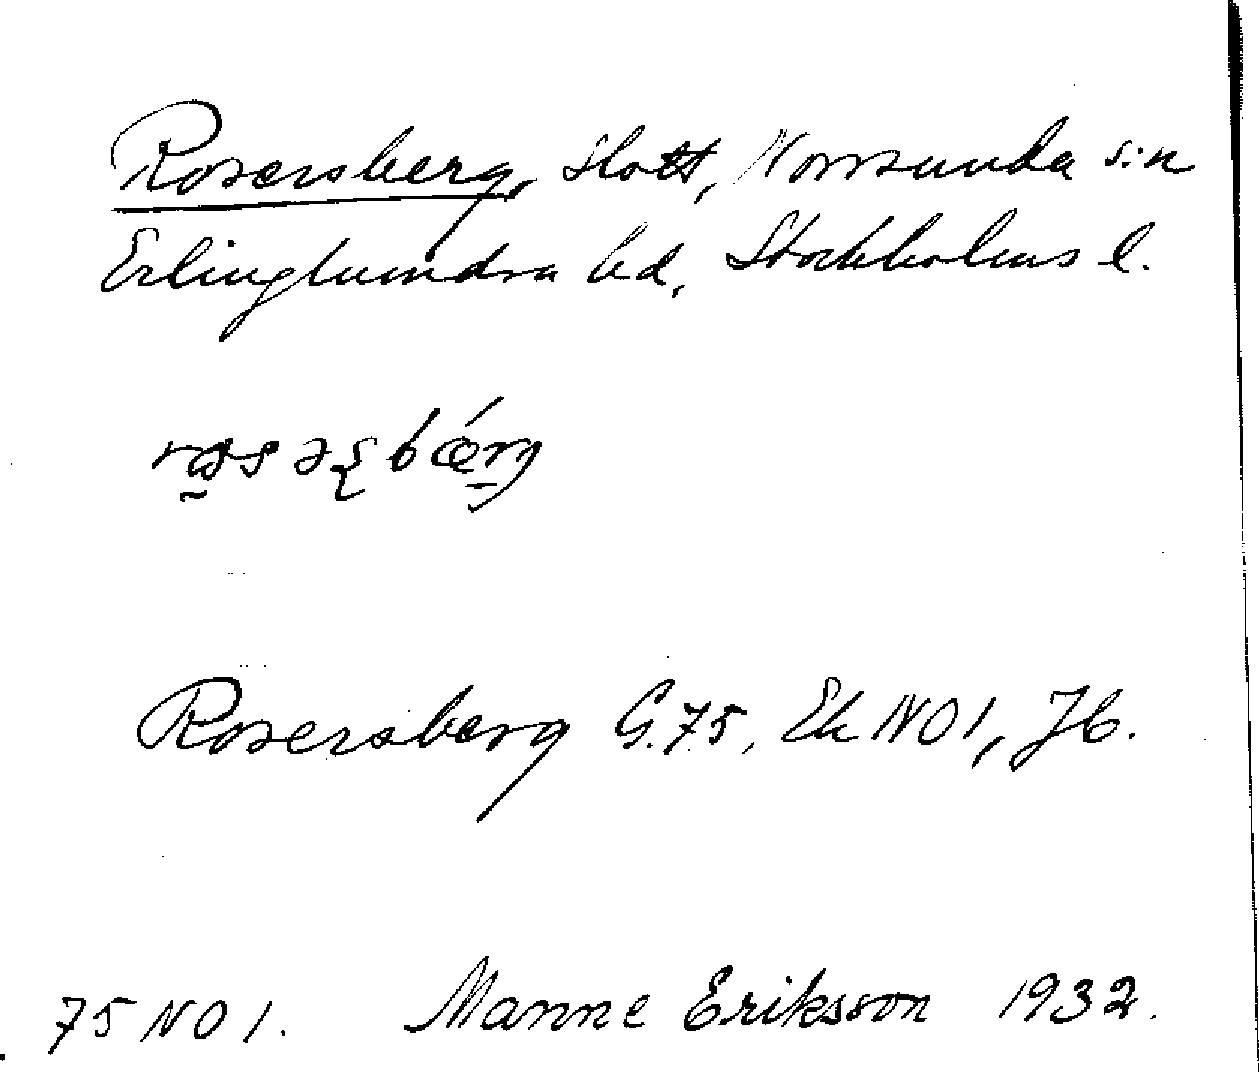 Rosersberg, slott, Norrsunda s:n
Erlinghundra hd, Stockholms l.
Rosersberg G.75, Ek NO1, Jb.
75 NO 1. Manne Eriksson 1932.